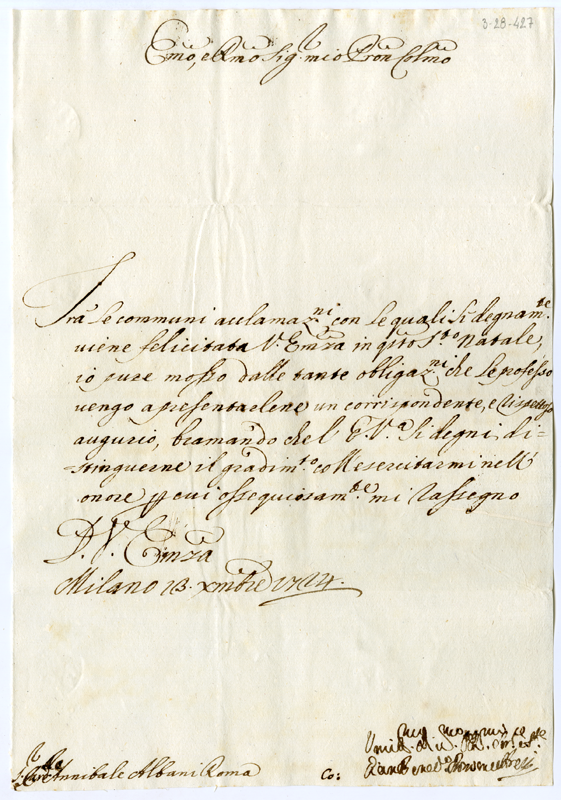 3-28-427
Emo, e Rmo Sig.r mio Pron Colmo
Trà le communi aclamaz.ni con le quali si degnam.te
viene felicitata V. Emza in qsto S.to Natale,
io pure mosso dalle tante obligaz.ni che le professo
vengo a presentarlene un corrispondente, e rispettoso
augurio, bramando che l' E. V.a si degni di=
=stinguerne il gradim.to coll esercitarmi nell'
onore p cui ossequiosam.te mi rassegno
D. V. Emza
Milano 13. xmbre 1714.
Umil.
S. Card. Annibale Albani Roma
Co: